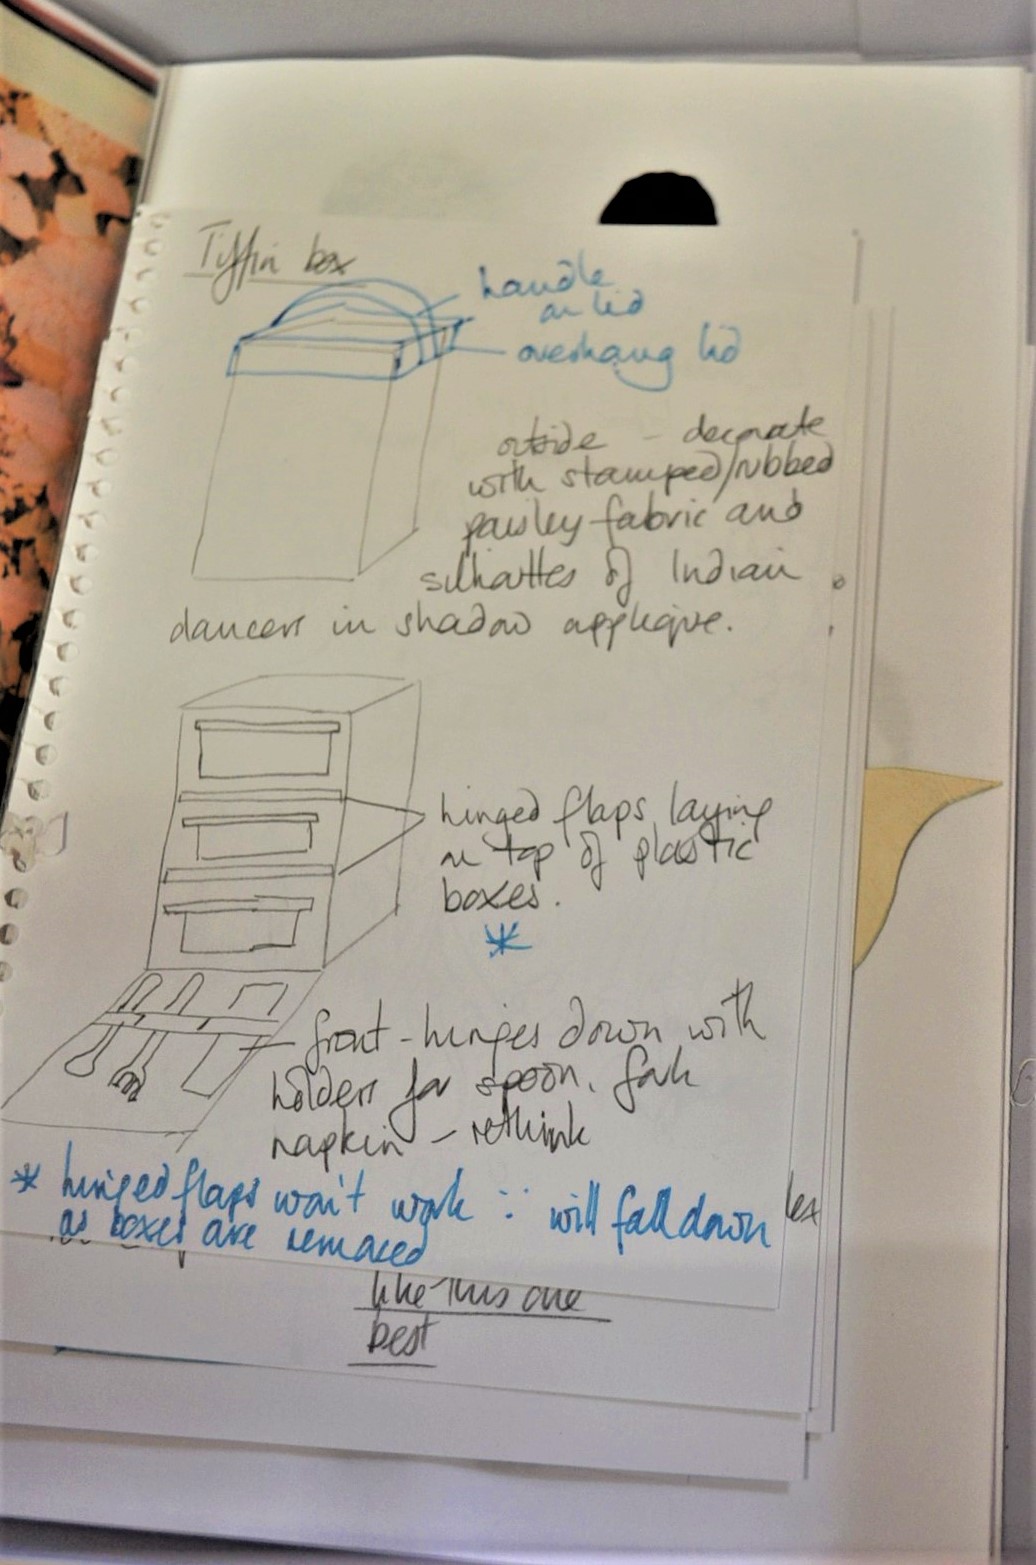 Tiffin box
handle
on lid
overhang lid
outside - decorate
with stamped/rubbed
paisley fabric and
silhattes of Indian
dancers in shadow applique.
hinged flaps laying
on top of plastic
boxes.
*
front - hinges down with
holders for spoon, fork
napkin - rethink
* hinged flaps won't work ∵ will fall down
as boxes are removed
like this one
best